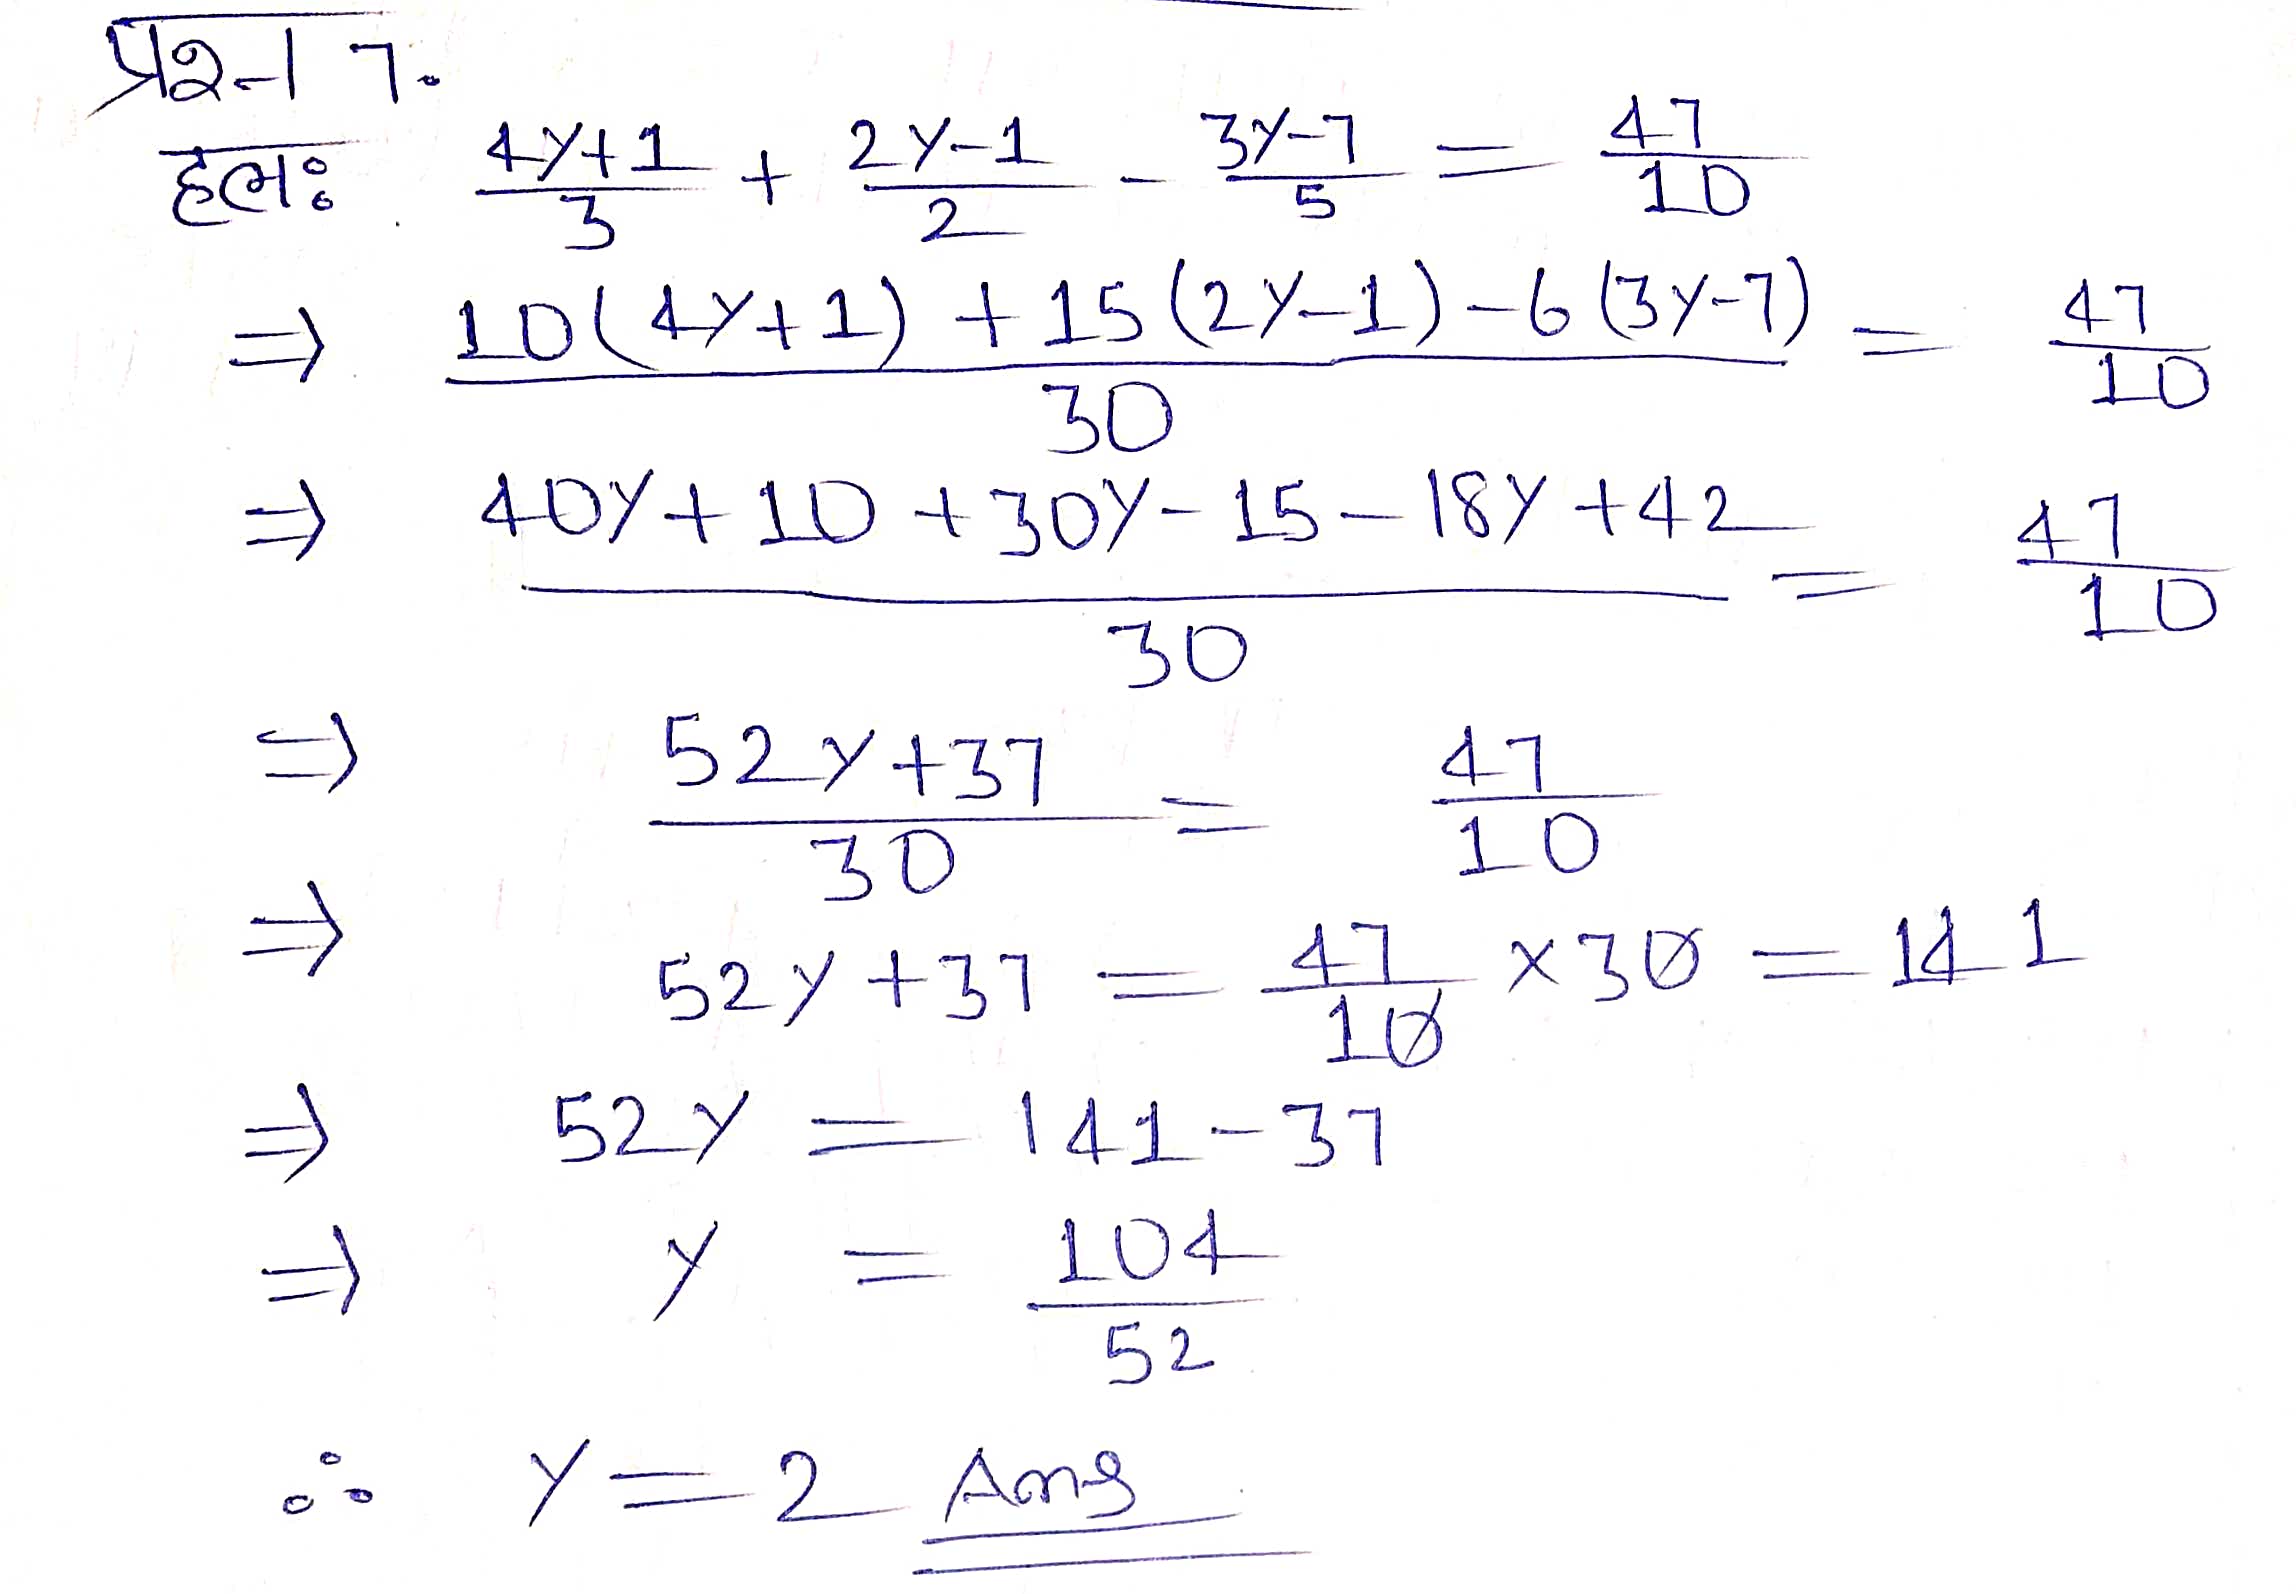 प्रश्न 7.
हल: (4y+1)/3 + (2y-1)/2 - (3y-7)/5 = 47/10
⇒ (10(4y+1) + 15(2y-1) - 6(3y-7))/30 = 47/10
⇒ (40y + 10 + 30y - 15 - 18y + 42)/30 = 47/10
⇒ (52y + 37)/30 = 47/10
⇒ 52y + 37 = 47/10 × 30 = 141
⇒ 52y = 141 - 37
⇒ y = 104/52
∴ y = 2 Ans